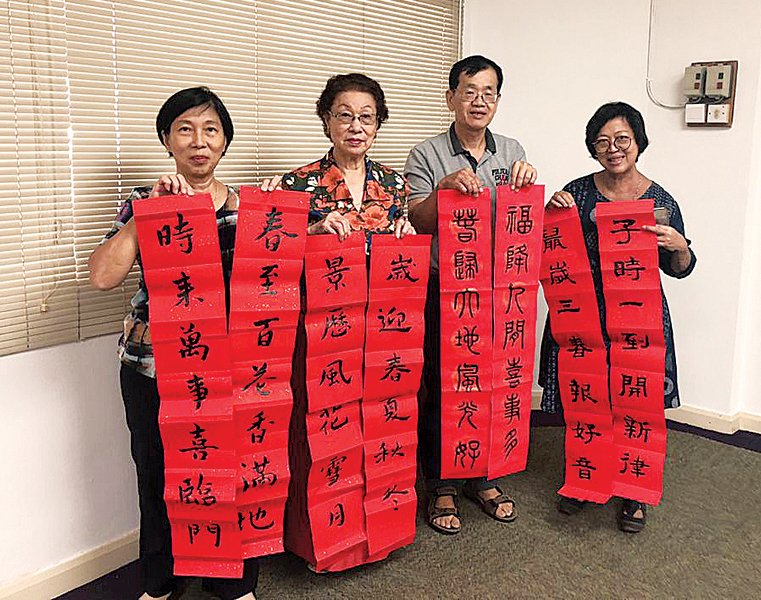 子時一到開新律
最歲三春報好音
福降人間喜事多
春歸大地風光好
歲迎春夏秋冬
景歷風花雪月
春至百花香滿地
時來萬事喜臨門